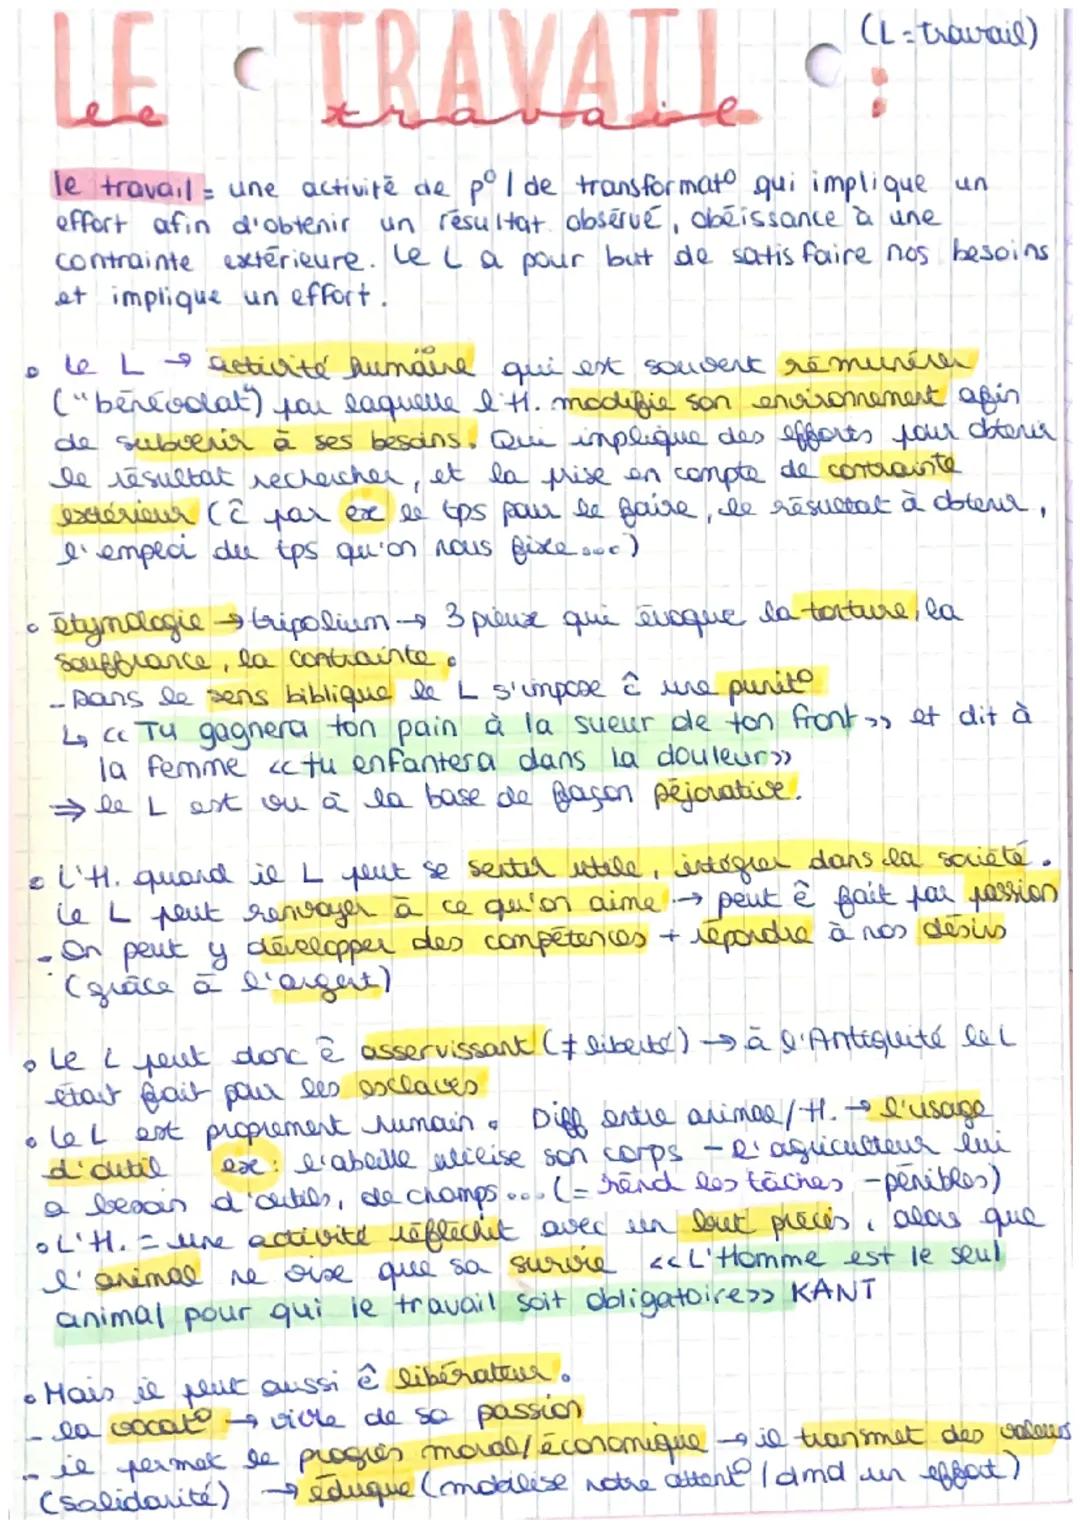 (L = travail)
LE TRAVAIL :
le travail
le travail = une activité de p° / de transformat° qui implique un
effort afin d'obtenir un résultat observé, obéissance à une
contrainte extérieure. Le L a pour but de satisfaire nos besoins
et implique un effort.
• Le L → activité humaine qui est souvent rémunérer
("bénévolat") par laquelle l'H. modifie son environnement afin
de subvenir à ses besoins. Qui implique des efforts pour obtenir
le résultat rechercher, et la prise en compte de contrainte
extérieur (ĉ par ex le tps pour le faire, le résultat à obtenir,
l'emploi du tps qu'on nous fixe...)
• étymologie → tripolium → 3 pieux qui évoque la torture, la
souffrance, la contrainte.
- Dans le sens biblique le L s'impose ĉ une punit°
↳ « Tu gagnera ton pain à la sueur de ton front » et dit à
la femme « tu enfantera dans la douleur »
⇒ le L est vu à la base de façon péjorative.
• L'H. quand il L peut se sentir utile, intégrer dans la société.
Le L peut renvoyer à ce qu'on aime → peut ê fait par passion
- On peut y développer des compétences + répondre à nos désirs
(grâce à l'argent)
• Le L peut donc ê asservissant (≠ liberté) → à l'Antiquité le L
était fait pour les esclaves
• Le L est proprement humain. Diff entre animal / H. → l'usage
d'outil ex : l'abeille utilise son corps - l'agriculteur lui
a besoin d'outils, de champs... (= rend les tâches - pénibles)
• L'H. = une activité réfléchit avec un but précis, alors que
l'animal ne vise que sa survie « L'Homme est le seul
animal pour qui le travail soit obligatoire » KANT
• Mais il peut aussi ê libérateur.
- la vocat° → vivre de sa passion
- il permet le progrès moral / économique → il transmet des valeurs
(solidarité) → éduque (mobilise notre attent° / dmd un effort)